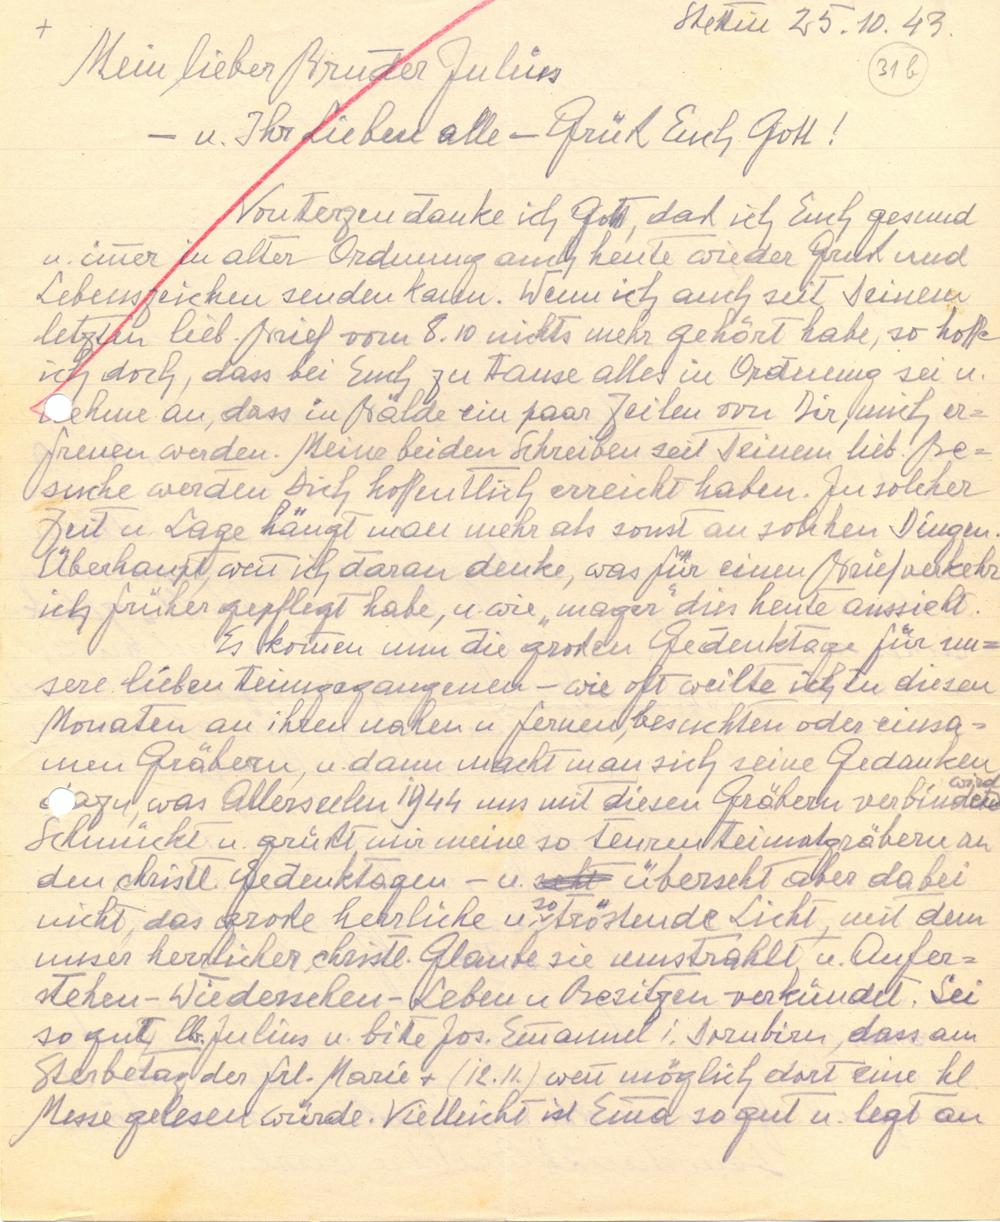 +
Stettin 25.10.43.
31b
Mein lieber Bruder Julius
– u. Ihr Lieben alle – Grüß Euch Gott!
Von Herzen danke ich Gott, daß ich Euch gesund
u. im̅er in alter Ordnung auch heute wieder Gruß und
Lebenszeichen senden kann. Wenn ich auch seit Deinem
letzten lieb. Brief vom 8.10 nichts mehr gehört habe, so hoffe
ich doch, dass bei Euch zu Hause alles in Ordnung sei u.
nehme an, dass in Bälde ein paar Zeilen von Dir, mich er=
freuen werden. Meine beiden Schreiben seit Deinem lieb. Be=
suche werden Dich hoffentlich erreicht haben. In solcher
Zeit u. Lage hängt man mehr als sonst an solchen Dingen.
Überhaupt, wen̅ ich daran denke, was für einen Briefverkehr
ich früher gepflegt habe, u. wie „mager" dies heute aussieht.
Es kom̅en nun die großen Gedenktage für un=
sere lieben Heimgegangenen – wie oft weilte ich in diesen
Monaten an ihren nahen u. fernen, besuchten oder einsa=
men Gräbern, u. dann macht man sich seine Gedanken
dazu, was Allerseelen 1944 uns mit diesen Gräbern verbinden wird
Schmückt u. grüßt mir meine so teuren Heimatgräbern an
den christl. Gedenktagen – u. überseht aber dabei
nicht, das große herrliche u. so tröstende Licht, mit dem
unser herrlicher, christl. Glaube sie umstrahlt u. Aufer=
stehen – Wiedersehen – Leben u Besitzen verkündet. Sei
so gut, lb. Julius u. bitte Jos. Em̅anuel i. Dornbirn, dass am
Sterbetag der Frl. Marie + (12.11.) wen̅ möglich dort eine hl
Messe gelesen würde. Vielleicht ist Em̅a so gut u. legt an